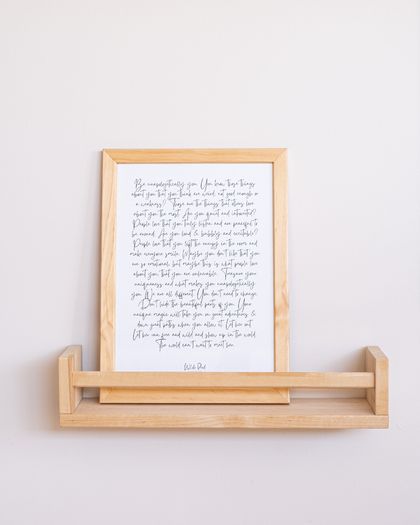 Be unapologetically you. You know those things
about you that you think are weird, not good enough or
a weakness? Those are the things that others love
about you the most. Are you quiet and introverted?
People love that you truly listen and are peaceful to
be around. Are you loud & bubbly and excitable?
People love that you lift the energy in the room and
make everyone smile. Maybe you don't like that you
are so emotional but maybe this is what people love
about you, that you are vulnerable. Treasure your
uniqueness and what makes you unapologetically
you. We are all different. You don't need to change.
Don't hide the beautiful parts of you. Your
unique magic will take you on great adventures &
down great paths when you allow it. Let her out.
Let her run free and wild and show up in the world.
The world can't wait to meet her.